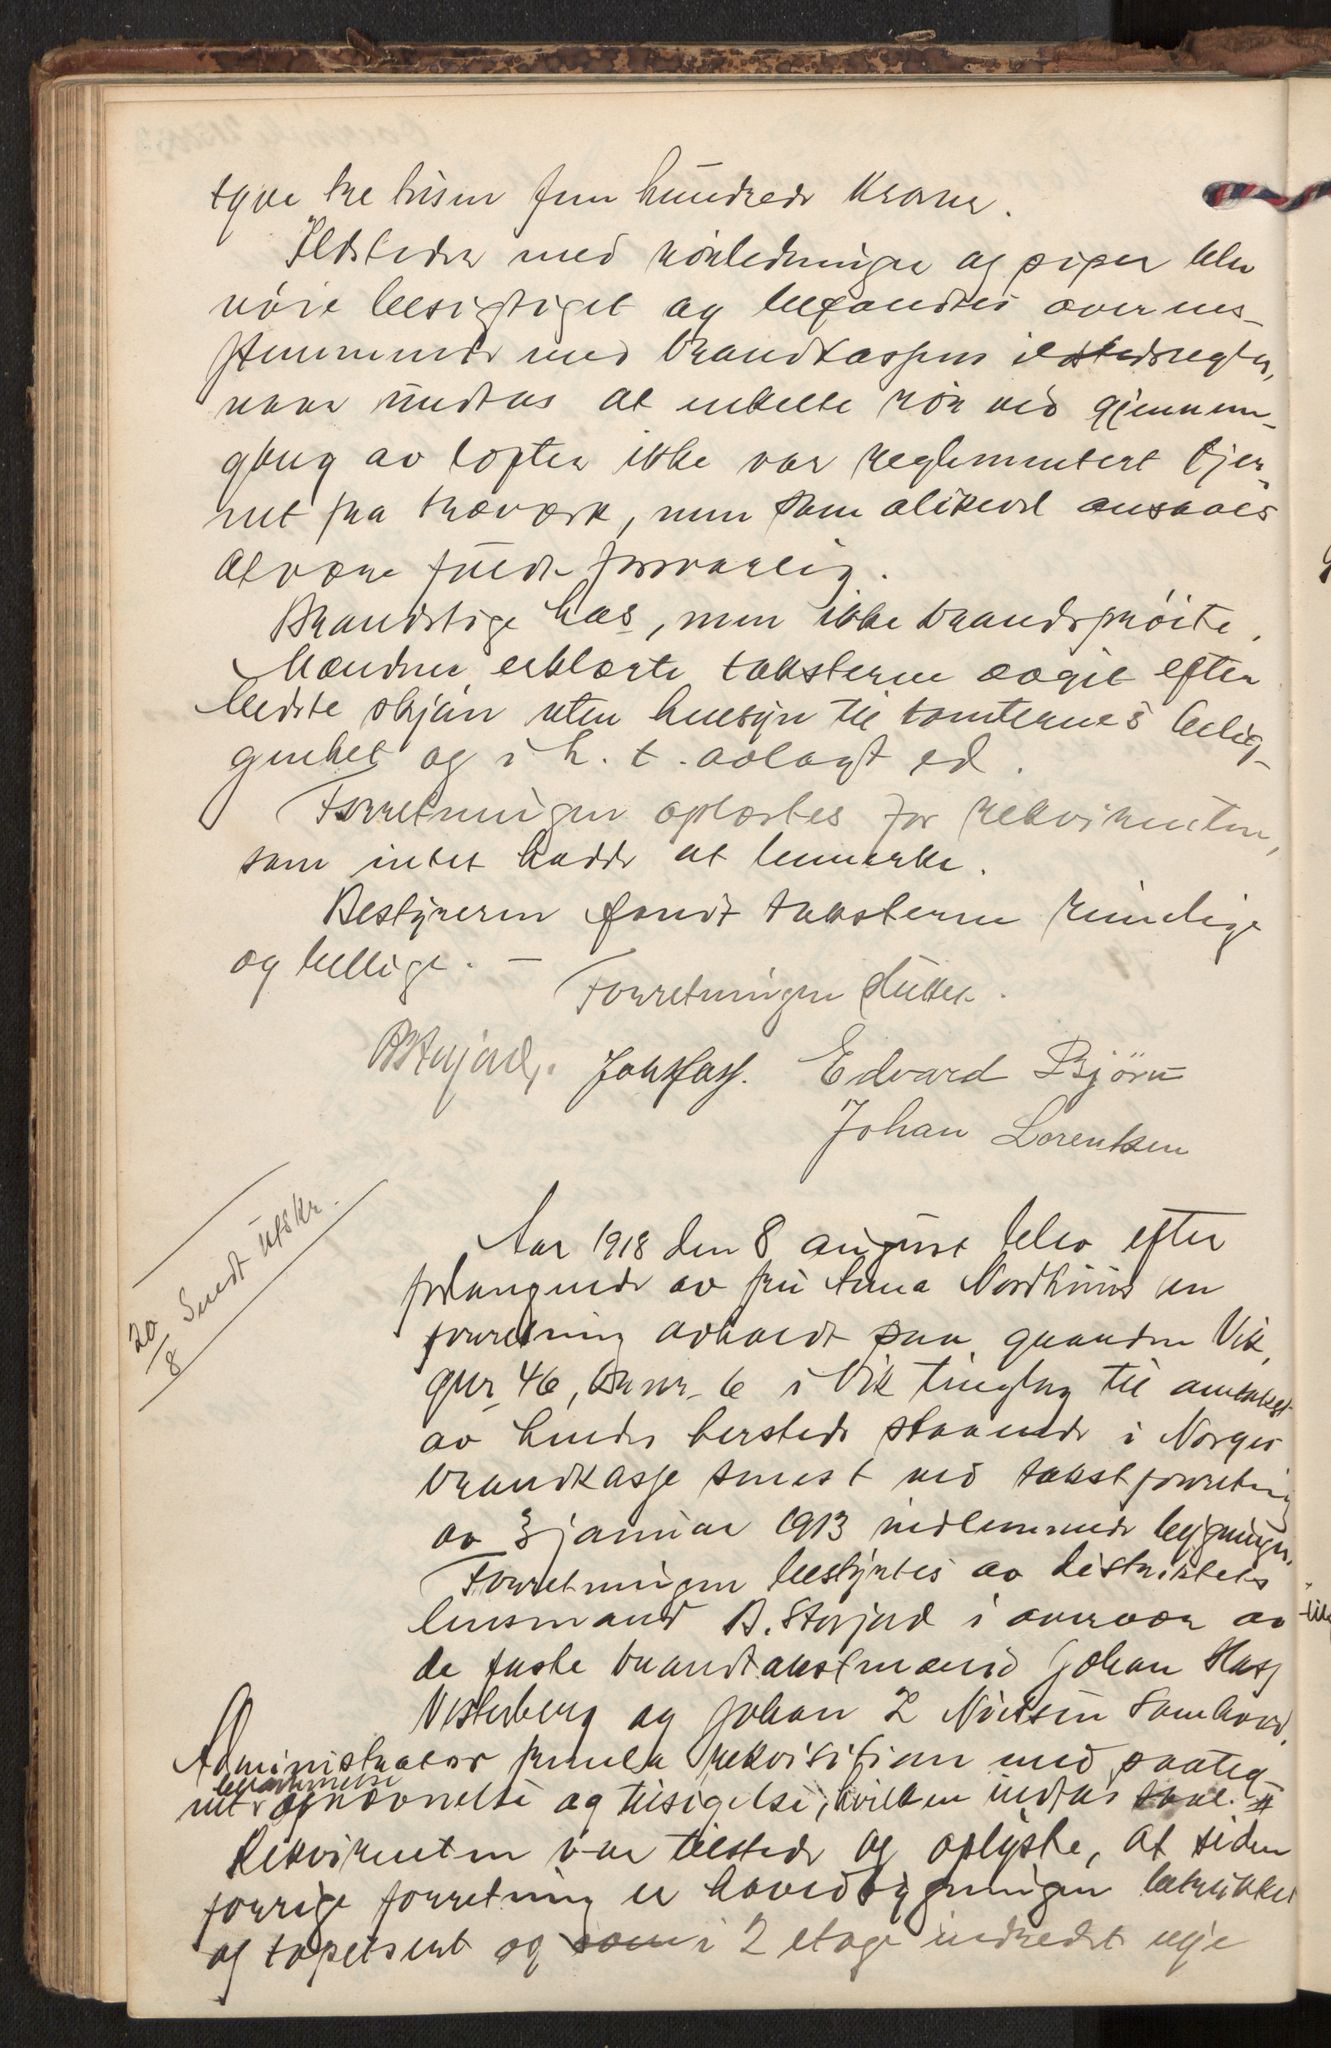 tyve tre tusen fem hundrede kroner.
Ildsteder med rörledninger og piper blev
nöie besigtiget og befandtes overens-
stemmende med brandkassens ildstedsregler,
naar undtas at enkelte rör ved gjennem-
gang av lofter ikke var reglementert fjer-
net fra træværk, men som alikevel ansaaes
at være fuldt forsvarlig.
Brandstige has, men ikke brandspröite.
Mændene erklærte taksterne avgit efter
bedste skjön uten hensyn til tomternes belig-
genhet og i h. t. avlagt ed.
Forretningen oplæstes for rekvirenten,
som intet hadde at bemerke.
Bestyreren fandt taksterne rimelige
og billige. —
Forretningen sluttet.
B Storjord. Joh Hass. Edvard Bjørn
Johan Lorentsen
20/8 Sendt utskr.
Aar 1918 den 8 august blev efter
forlangende av fru Anna Nordhuus en
forretning avholdt paa gaarden Vik,
gnr. 46, br.nr. 6 i Vik tinglag til omtakst
av hendes hersteds staaende i Norges
brandkasse senest ved takstforretning
av 3 januar 1913 indlemmede bygninger.
Forretningen bestyrtes av distriktets
lensmand B. Storjord i overvær av
de faste brandtakstmænd Johan Hass
Vesterberg og Johan L Nielsen
Administrator fremla rekvisition med paateg-
net berammelse
og opnævnelse og tilsigelse, hvilken indtas #
Rekvirenten var tilstede og oplyste, at siden
forrige forretning er hovedbygningen betrukket
og tapetsert og som i 2 etage indredet nye